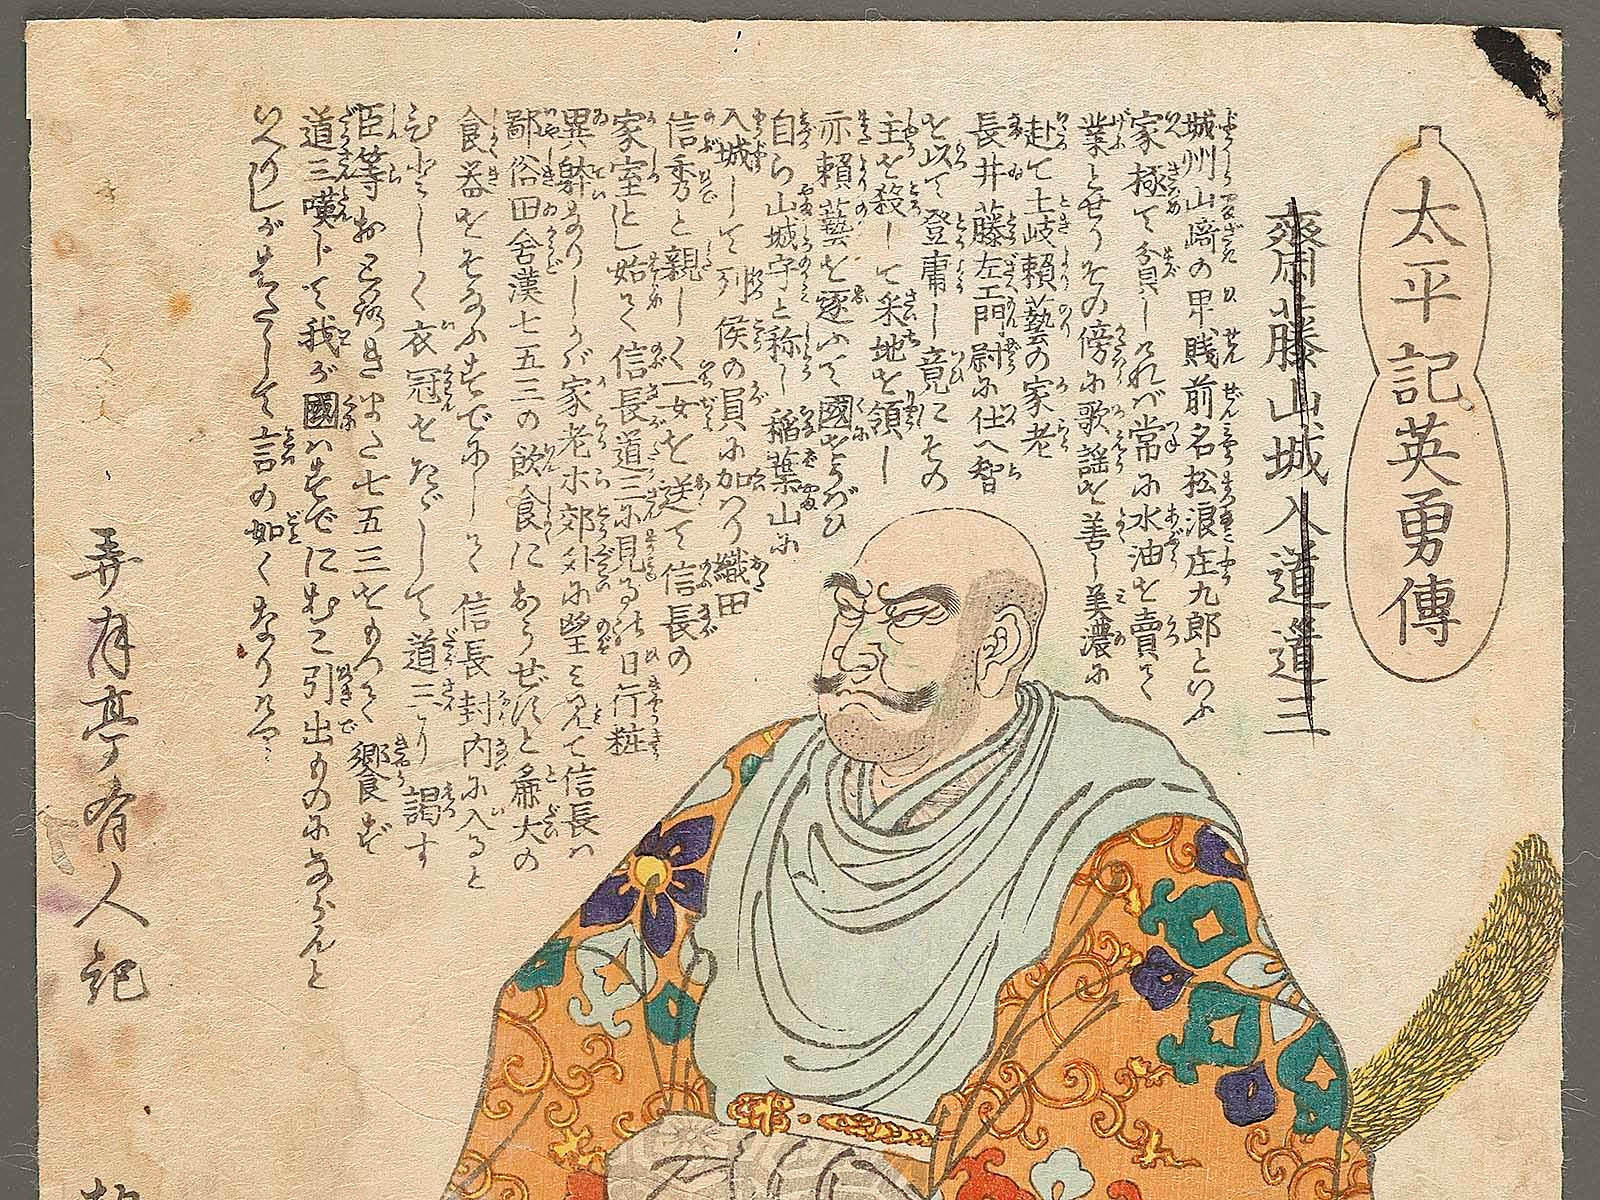 太平記英勇傳
齋藤山城入道道三
城州山﨑の甲賎前名松浪庄九郎といふ
家極て貧しけれバ常に水油を賣て
業とせりその傍に歌謡を善し美濃に
赴て土岐賴藝の家老
長井藤左エ門尉に仕へ智
を以て登庸し竟にその
主を殺して采地を領し
亦賴藝を逐ふて國をうばひ
自ら山城守と称し稲葉山に
入城して列侯の員に加はり織田
信秀と親しく一女を送て信長の
家室とし始て信長道三に見る此日行粧
異躰なりしが家老ホ郊外に望み見て信長ハ
鄙俗田舎漢七五三の飲食に
食器をそなふすでにして信長封内に入ると
ひとしく衣冠をたゞして道三に謁す
臣等おどろきまた七五三をもつて饗せ
道三嘆じて我が國ハすでにむこ引出ものにならんと
いへりしがはたして言の如くなりけり
弄月亭有人記